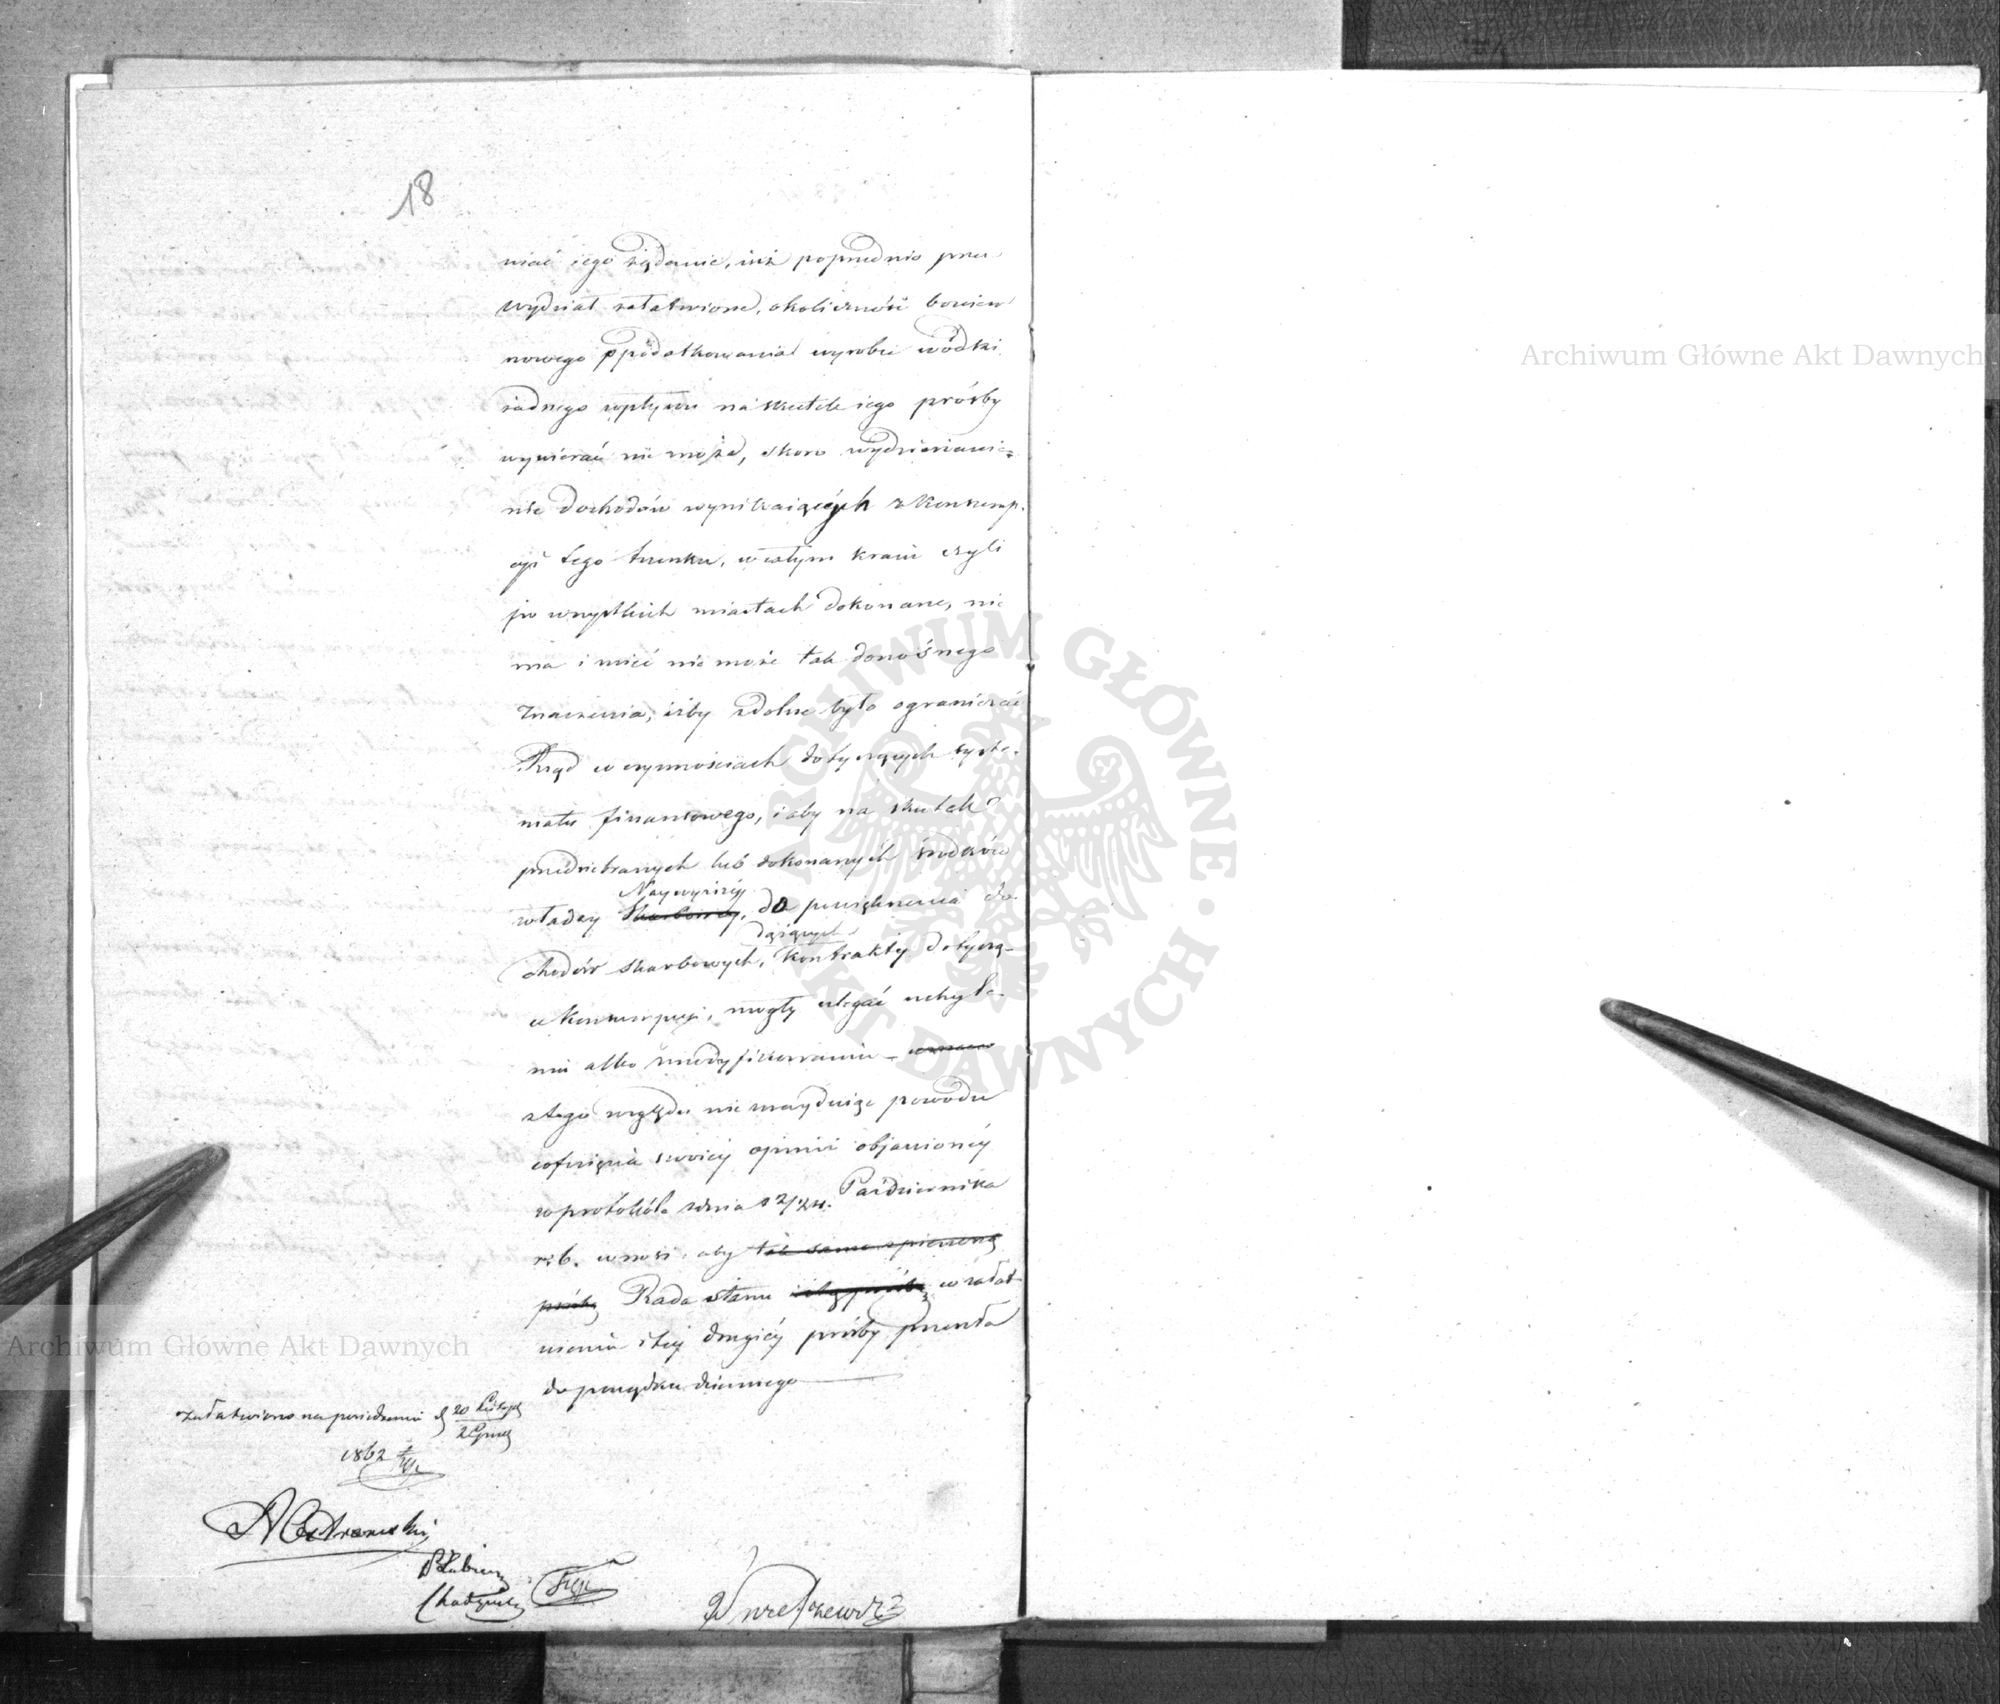 18
wiać iego żądanie, iuż poprzednio przez
wydział załatwione, okoliczność bowiem
nowego opodatkowania wyrobu wódki
żadnego wpływu na skutek iego prośby
wywierać nie może, skoro wydzierżawie-
nie dochodów wynikaiących z konsump-
cyi tego trunku, w całym kraiu czyli
po wszystkich miastach dokonane, nie
ma i mieć nie może tak donośnego
znaczenia, iżby zdolne było ograniczać
Rząd w czynnościach dotyczących syste-
matu finansowego, i aby na skutek
przedsiebranych lub dokonanych środków
Naywyższéj
władzy Skarbowey, do powiększenia do-
dążących
chodów skarbowych, kontrakty dotyczą-
ce konsumpcyi, mogły ulegać uchyle-
niu albo zmodyfikowaniu –
z tego względu nie znayduiąc powodu
cofnięcia swoiéj opinii objawionéj
w protokóle z dnia 12/24. Października
r. b. wnosi, aby tak samo
prośbę Rada stanu w załat-
wieniu i téj drugiéj prośby przeszła
do porządku dziennego
Załatwiono na posiedzeniu d 20 Listopada
2 Grud
1862
A Ostrowski
Archiwum Główne Akt Dawnych
Archiwum Główne Akt Dawnych
ARCHIWUM GŁÓWNE AKT DAWNYCH